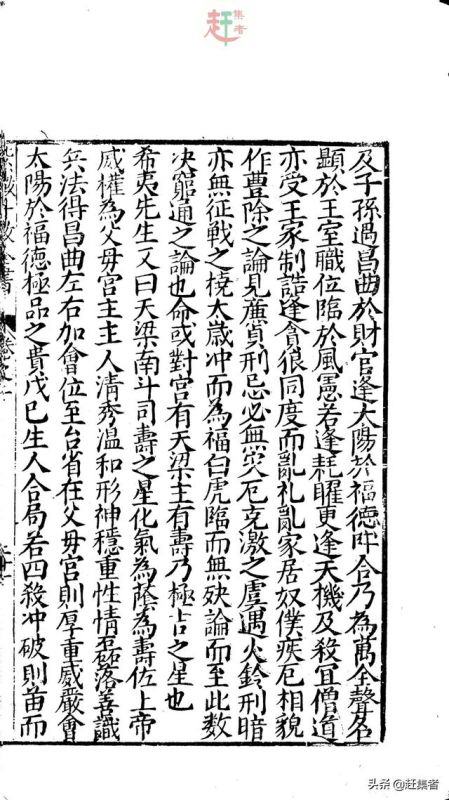 赶集者
及子孫遇昌曲於財官逢太陽於福德㕕合乃為萬全聲名
顯於王室職位臨於風憲若逢耗曜更逢天機及殺宜僧道
亦受王家制誥逢貪狼同度而亂礼亂家居奴僕疾厄相貌
作豊除之論見廉貞刑忌必無災厄克激之虞遇火鈴刑暗
亦無征戰之撓太歲冲而為福白虎臨而無殃論而至此数
决窮通之論也命或對宮有天梁主有壽乃極占之星也
希夷先生又曰天梁南斗司壽之星化氣為蔭為壽佐上帝
威權為父母宮主主人清秀温和形神穩重性情磊落善識
兵法得昌曲左右加會位至台省在父母宮則厚重威嚴會
太陽於福德極品之貴戊巳生人合局若四殺冲破則苗而
头条 @赶集者